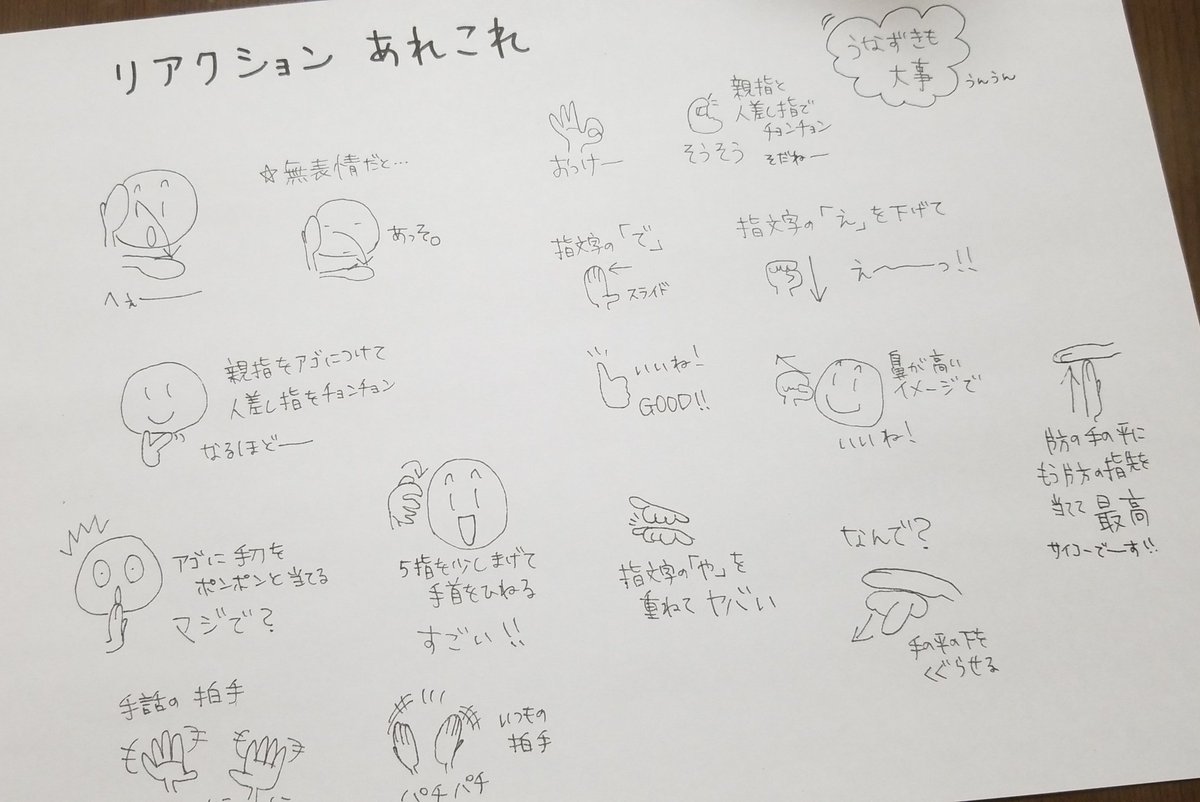 リアクション あれこれ
うなずきも
大事
うんうん
☆無表情だと…
あっそ。
へぇー
おっけー
親指と
人差し指で
チョンチョン
そうそう
そだねー
指文字の「で」
スライド
指文字の「え」を下げて
えーーっ!!
親指をアゴにつけて
人差し指をチョンチョン
なるほどー
いいね!
GOOD!!
鼻が高い
イメージで
いいね!
片方の手の平に
もう片方の指先を
当てて 最高
サイコーでーす!!
アゴに手刀を
ポンポンと当てる
マジで?
5指を少しまげて
手首をひねる
すごい!!
指文字の「や」を
重ねて ヤバい
なんで?
手の平の下を
くぐらせる
手話の 拍手
いつもの
拍手
パチパチ